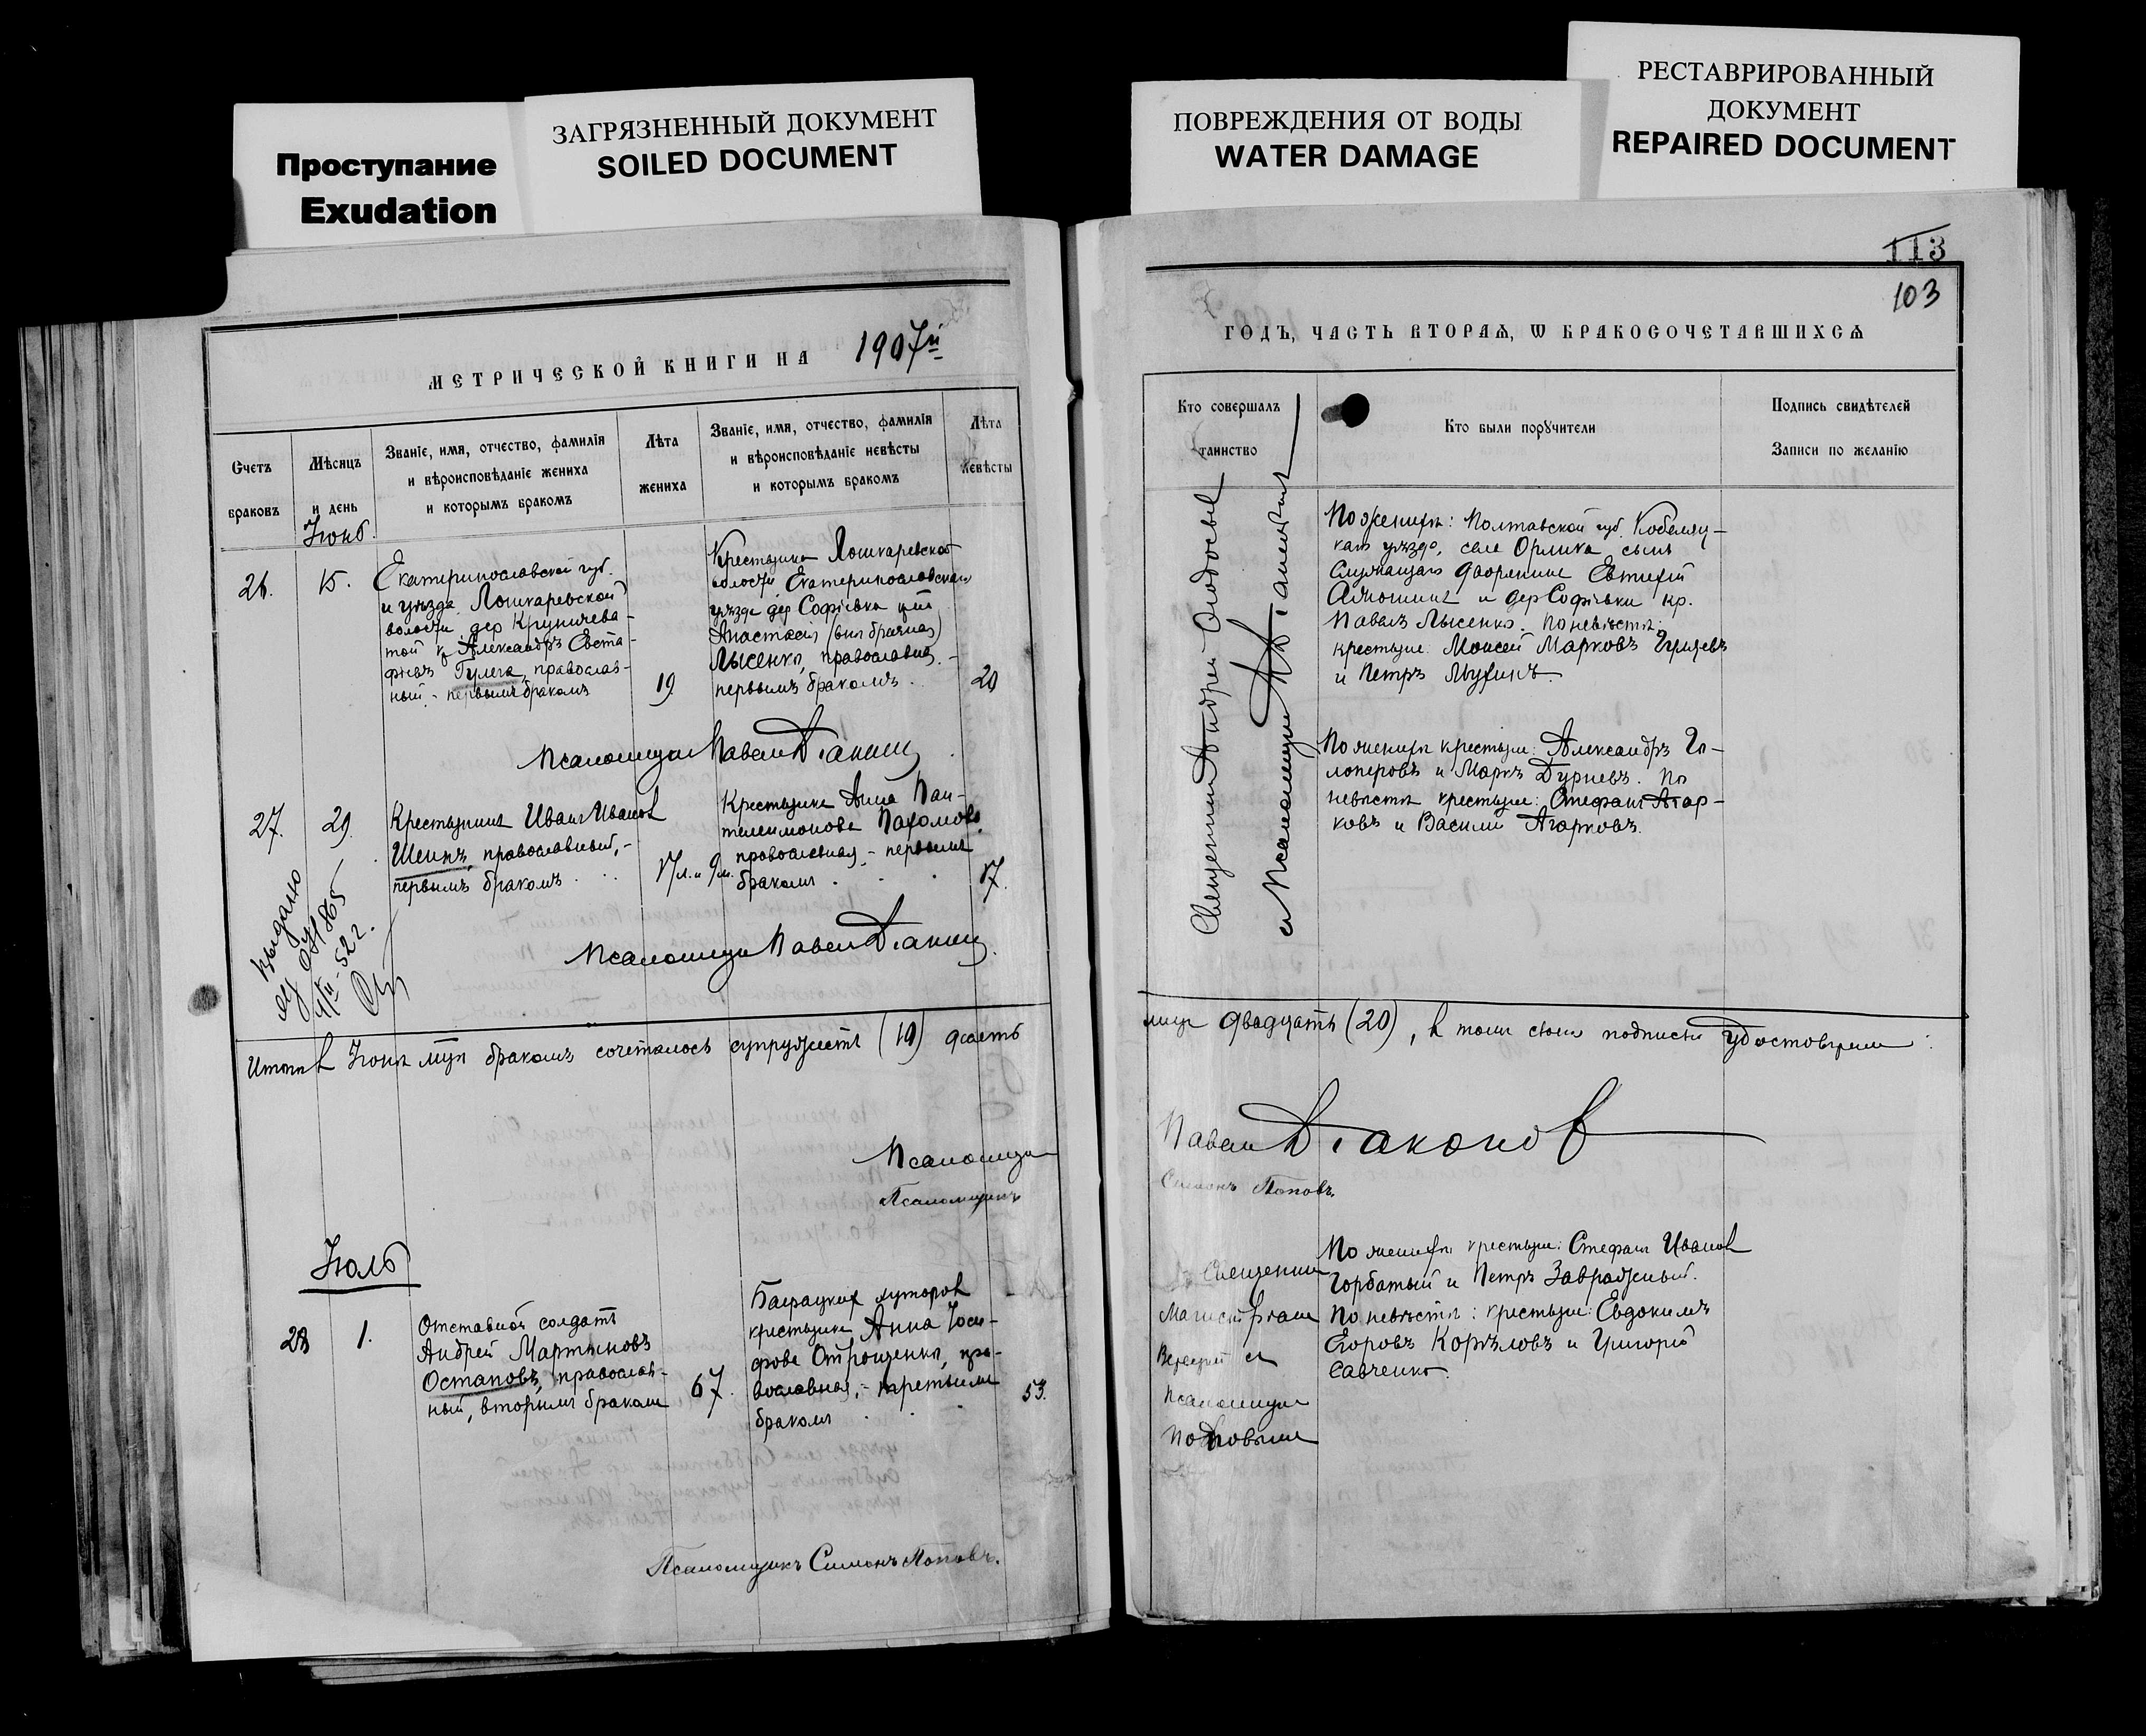 Проступание
Exudation
ЗАГРЯЗНЕННЫЙ ДОКУМЕНТ
SOILED DOCUMENT
ПОВРЕЖДЕНИЯ ОТ ВОДЫ
WATER DAMAGE
РЕСТАВРИРОВАННЫЙ
ДОКУМЕНТ
REPAIRED DOCUMENT
МЕТРИЧЕСКОЙ КНИГИ НА 1907й
Счетъ
браковъ
Мѣсяцъ
и день
Званіе, имя, отчество, фамилія
и вѣроисповѣданіе жениха
и которымъ бракомъ
Лѣта
жениха
Званіе, имя, отчество, фамилія
и вѣроисповѣданіе невѣсты
и которымъ бракомъ
Лѣта
невѣсты
Іюнь.
26.
15.
Екатеринославской губ.
и уѣзда, Лошкаревской
волости дер Круничева-
той кр Александръ Евста-
фіевъ Гулега, православ-
ный. - первымъ бракомъ
19
Крестьянка Лошкаревской
волости Екатеринославскаго
уѣзда дер Софіевка
Анастасія (вня брачная)
Лысенко, православная. -
первымъ бракомъ.
20
Псаломщикъ Павелъ Діаконовъ
27.
29.
Крестьянинъ Иванъ Ивановъ
Шеинъ, православный, -
первымъ бракомъ . .
17 л. и 9 м.
Крестьянка Анна Пан-
телеимонова Пахомова
православная, - первымъ
бракомъ . . .
17.
Псаломщикъ Павелъ Діаконовъ
Выдано
52 г.
Итого въ Іюнѣ мцѣ бракомъ сочеталось супружествъ (10) десять
Псаломщикъ
Псаломщикъ
Іюль
28
1.
Отставной солдатъ
Андрей Мартыновъ
Остаповъ, православ-
ный, вторымъ бракомъ
67.
хуторовъ
крестьянка Анна Іоси-
фова Отрощенко, пра-
вославная, - третьимъ
бракомъ . . .
53.
Псаломщикъ Симонъ Поповъ.
113
103
ГОДЪ, ЧАСТЬ ВТОРАѦ, Ѡ БРАКОСОЧЕТАВШИХСѦ
Кто совершалъ
таинство
Кто были поручители
Подпись свидѣтелей
Записи по желанію
Священникъ Андрей
съ Псаломщикомъ
По женихѣ: Полтавской губ. Кобеляц-
каго уѣзда, села Орлика, сынъ
служащаго дворянина Евтихій
и дер Софіевки кр.
Павелъ Лысенко. По невѣстѣ:
крестьяне: Моисей Марковъ
и Петръ Мухинъ.
По женихѣ крестьяне: Александръ Га-
и Маркъ Дурневъ. По
невѣстѣ крестьяне: Стефанъ Агар-
ковъ и Василій Агарковъ.
лицъ двадцать (20), въ томъ своимъ подписомъ удостовѣряемъ:
Павелъ Діаконовъ
Симонъ Поповъ.
Священникъ
съ
Псаломщикомъ
Поповымъ
По женихѣ крестьяне: Стефанъ Ивановъ
Горбатый и Петръ Завражный.
По невѣстѣ: крестьяне: Евдокимъ
Егоровъ и Григорій
Савченко.